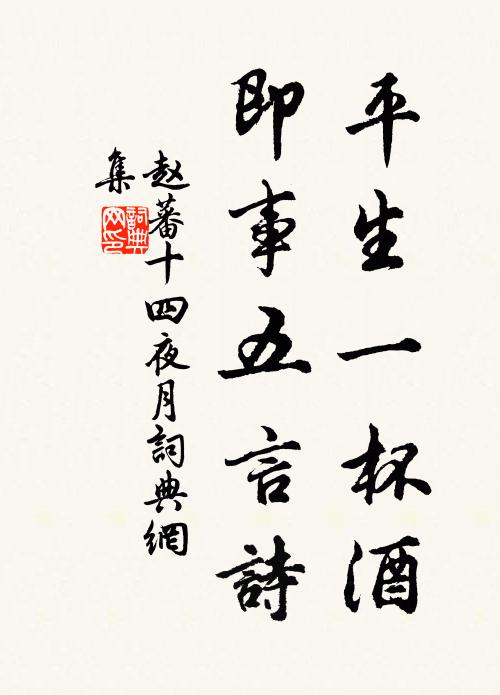 平生一杯酒
即事五言詩
赵蕃十四夜月詞典網
集
詞典网印